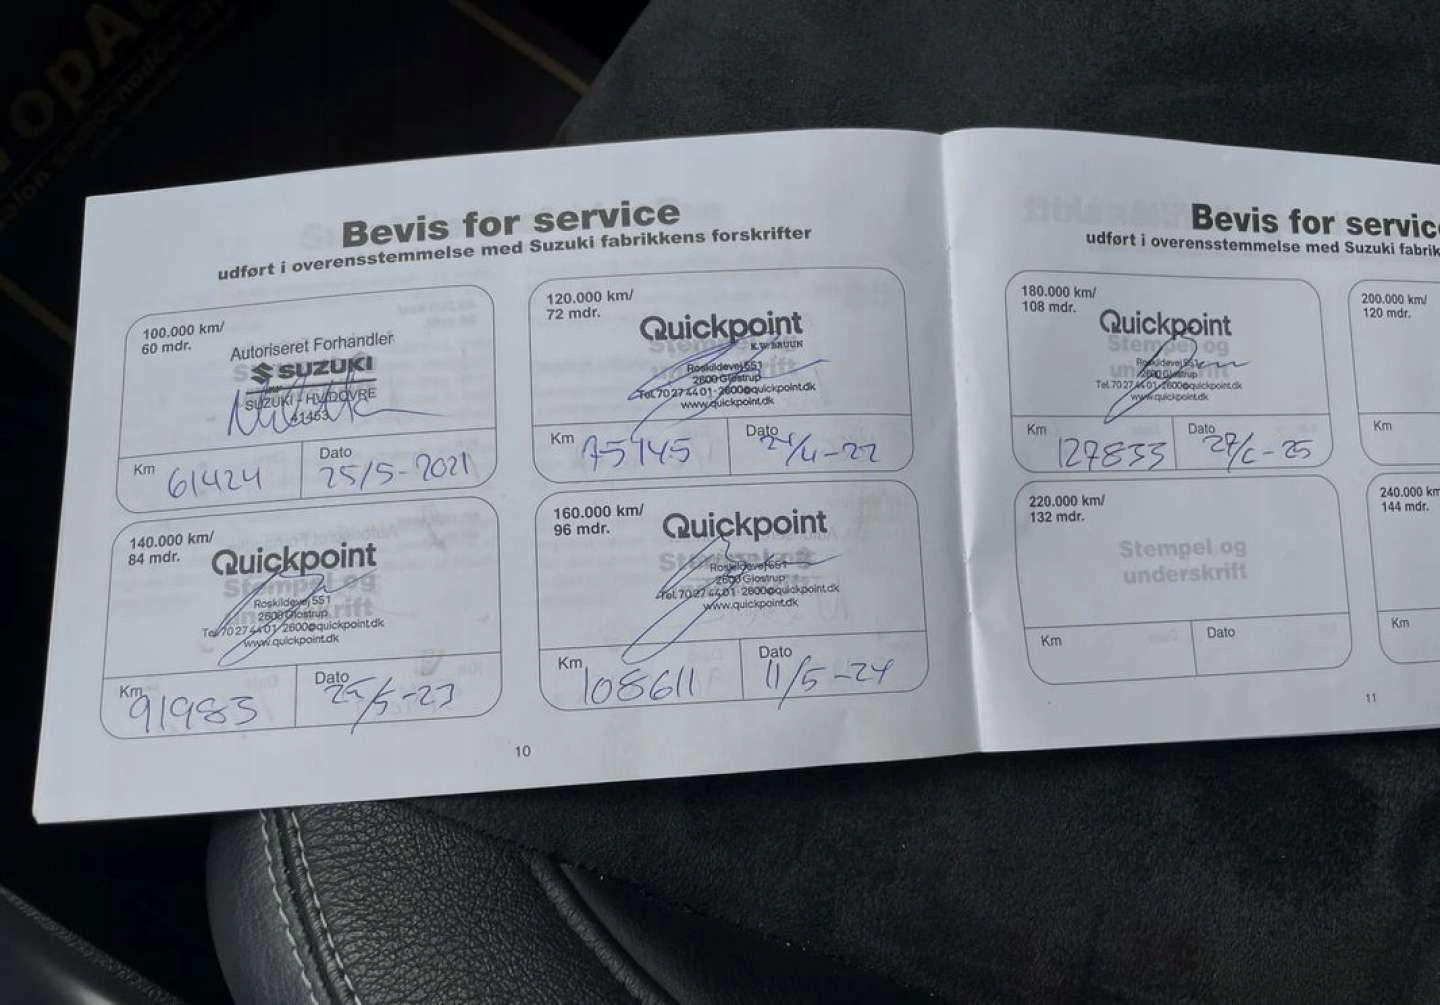 Bevis for service
udført i overensstemmelse med Suzuki fabrikkens forskrifter
100.000 km/
60 mdr.
Autoriseret Forhandler
SUZUKI
SUZUKI - HVIDOVRE
41453
Km 61424
Dato 25/5-2021
120.000 km/
72 mdr.
Quickpoint
K.W. BRUUN
Roskildevej 551
2600 Glostrup
Tel. 70 27 44 01 · 2600@quickpoint.dk
www.quickpoint.dk
Km 75145
Dato 24/4-22
140.000 km/
84 mdr.
Quickpoint
Stempel og
underskrift
Roskildevej 551
2600 Glostrup
Tel. 70 27 44 01 · 2600@quickpoint.dk
www.quickpoint.dk
Km 91983
Dato 25/5-23
160.000 km/
96 mdr.
Quickpoint
Roskildevej 551
2600 Glostrup
Tel. 70 27 44 01 · 2600@quickpoint.dk
www.quickpoint.dk
Km 108611
Dato 11/5-24
10
Bevis for servic
udført i overensstemmelse med Suzuki fabrik
180.000 km/
108 mdr.
Quickpoint
Stempel og
Roskildevej 551
2600 Glostrup
Tel. 70 27 44 01 · 2600@quickpoint.dk
www.quickpoint.dk
Km 127833
Dato 27/6-25
200.000 km/
120 mdr.
Km
220.000 km/
132 mdr.
Stempel og
underskrift
Km
Dato
240.000 km
144 mdr.
Km
11